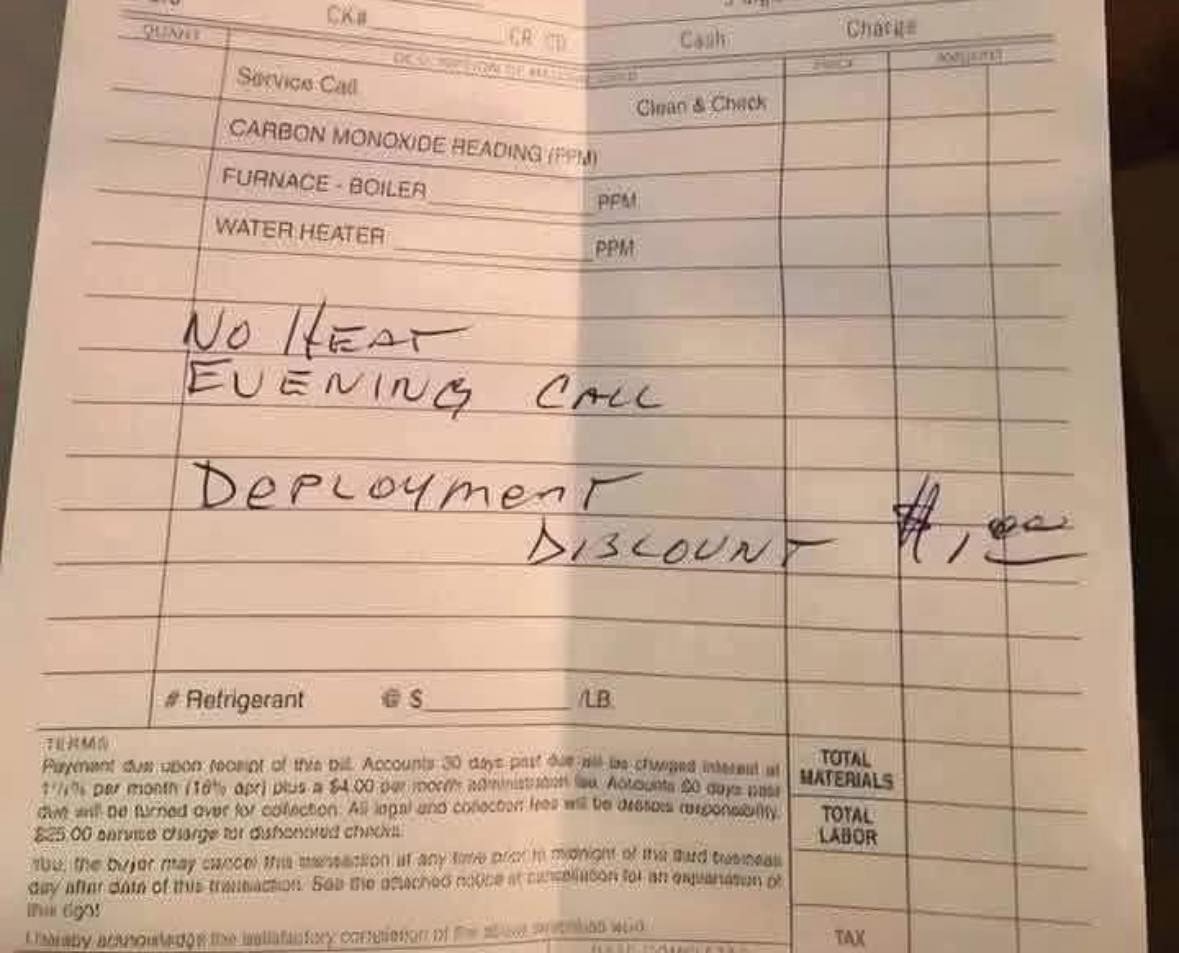 CK# CR CD Cash Charge
QUANT DESCRIPTION OF MATERIAL USED PRICE AMOUNT
Service Call Clean & Check
CARBON MONOXIDE READING (PPM)
FURNACE - BOILER PPM
WATER HEATER PPM
NO HEAT
EVENING CALL
DEPLOYMENT
DISCOUNT $1.00
# Refrigerant @ $ /LB.
TERMS
Payment due upon receipt of this bill. Accounts 30 days past due will be charged interest at
1½% per month (18% apr) plus a $4.00 per month administration fee. Accounts 60 days past
due will be turned over for collection. All legal and collection fees will be debtors responsibility.
$25.00 service charge for dishonored checks.
You, the buyer may cancel this transaction at any time prior to midnight of the third business
day after date of this transaction. See the attached notice of cancellation for an explanation of
this right
I hereby acknowledge the satisfactory completion of the above described work.
TOTAL
MATERIALS
TOTAL
LABOR
TAX
DATE COMPLETED